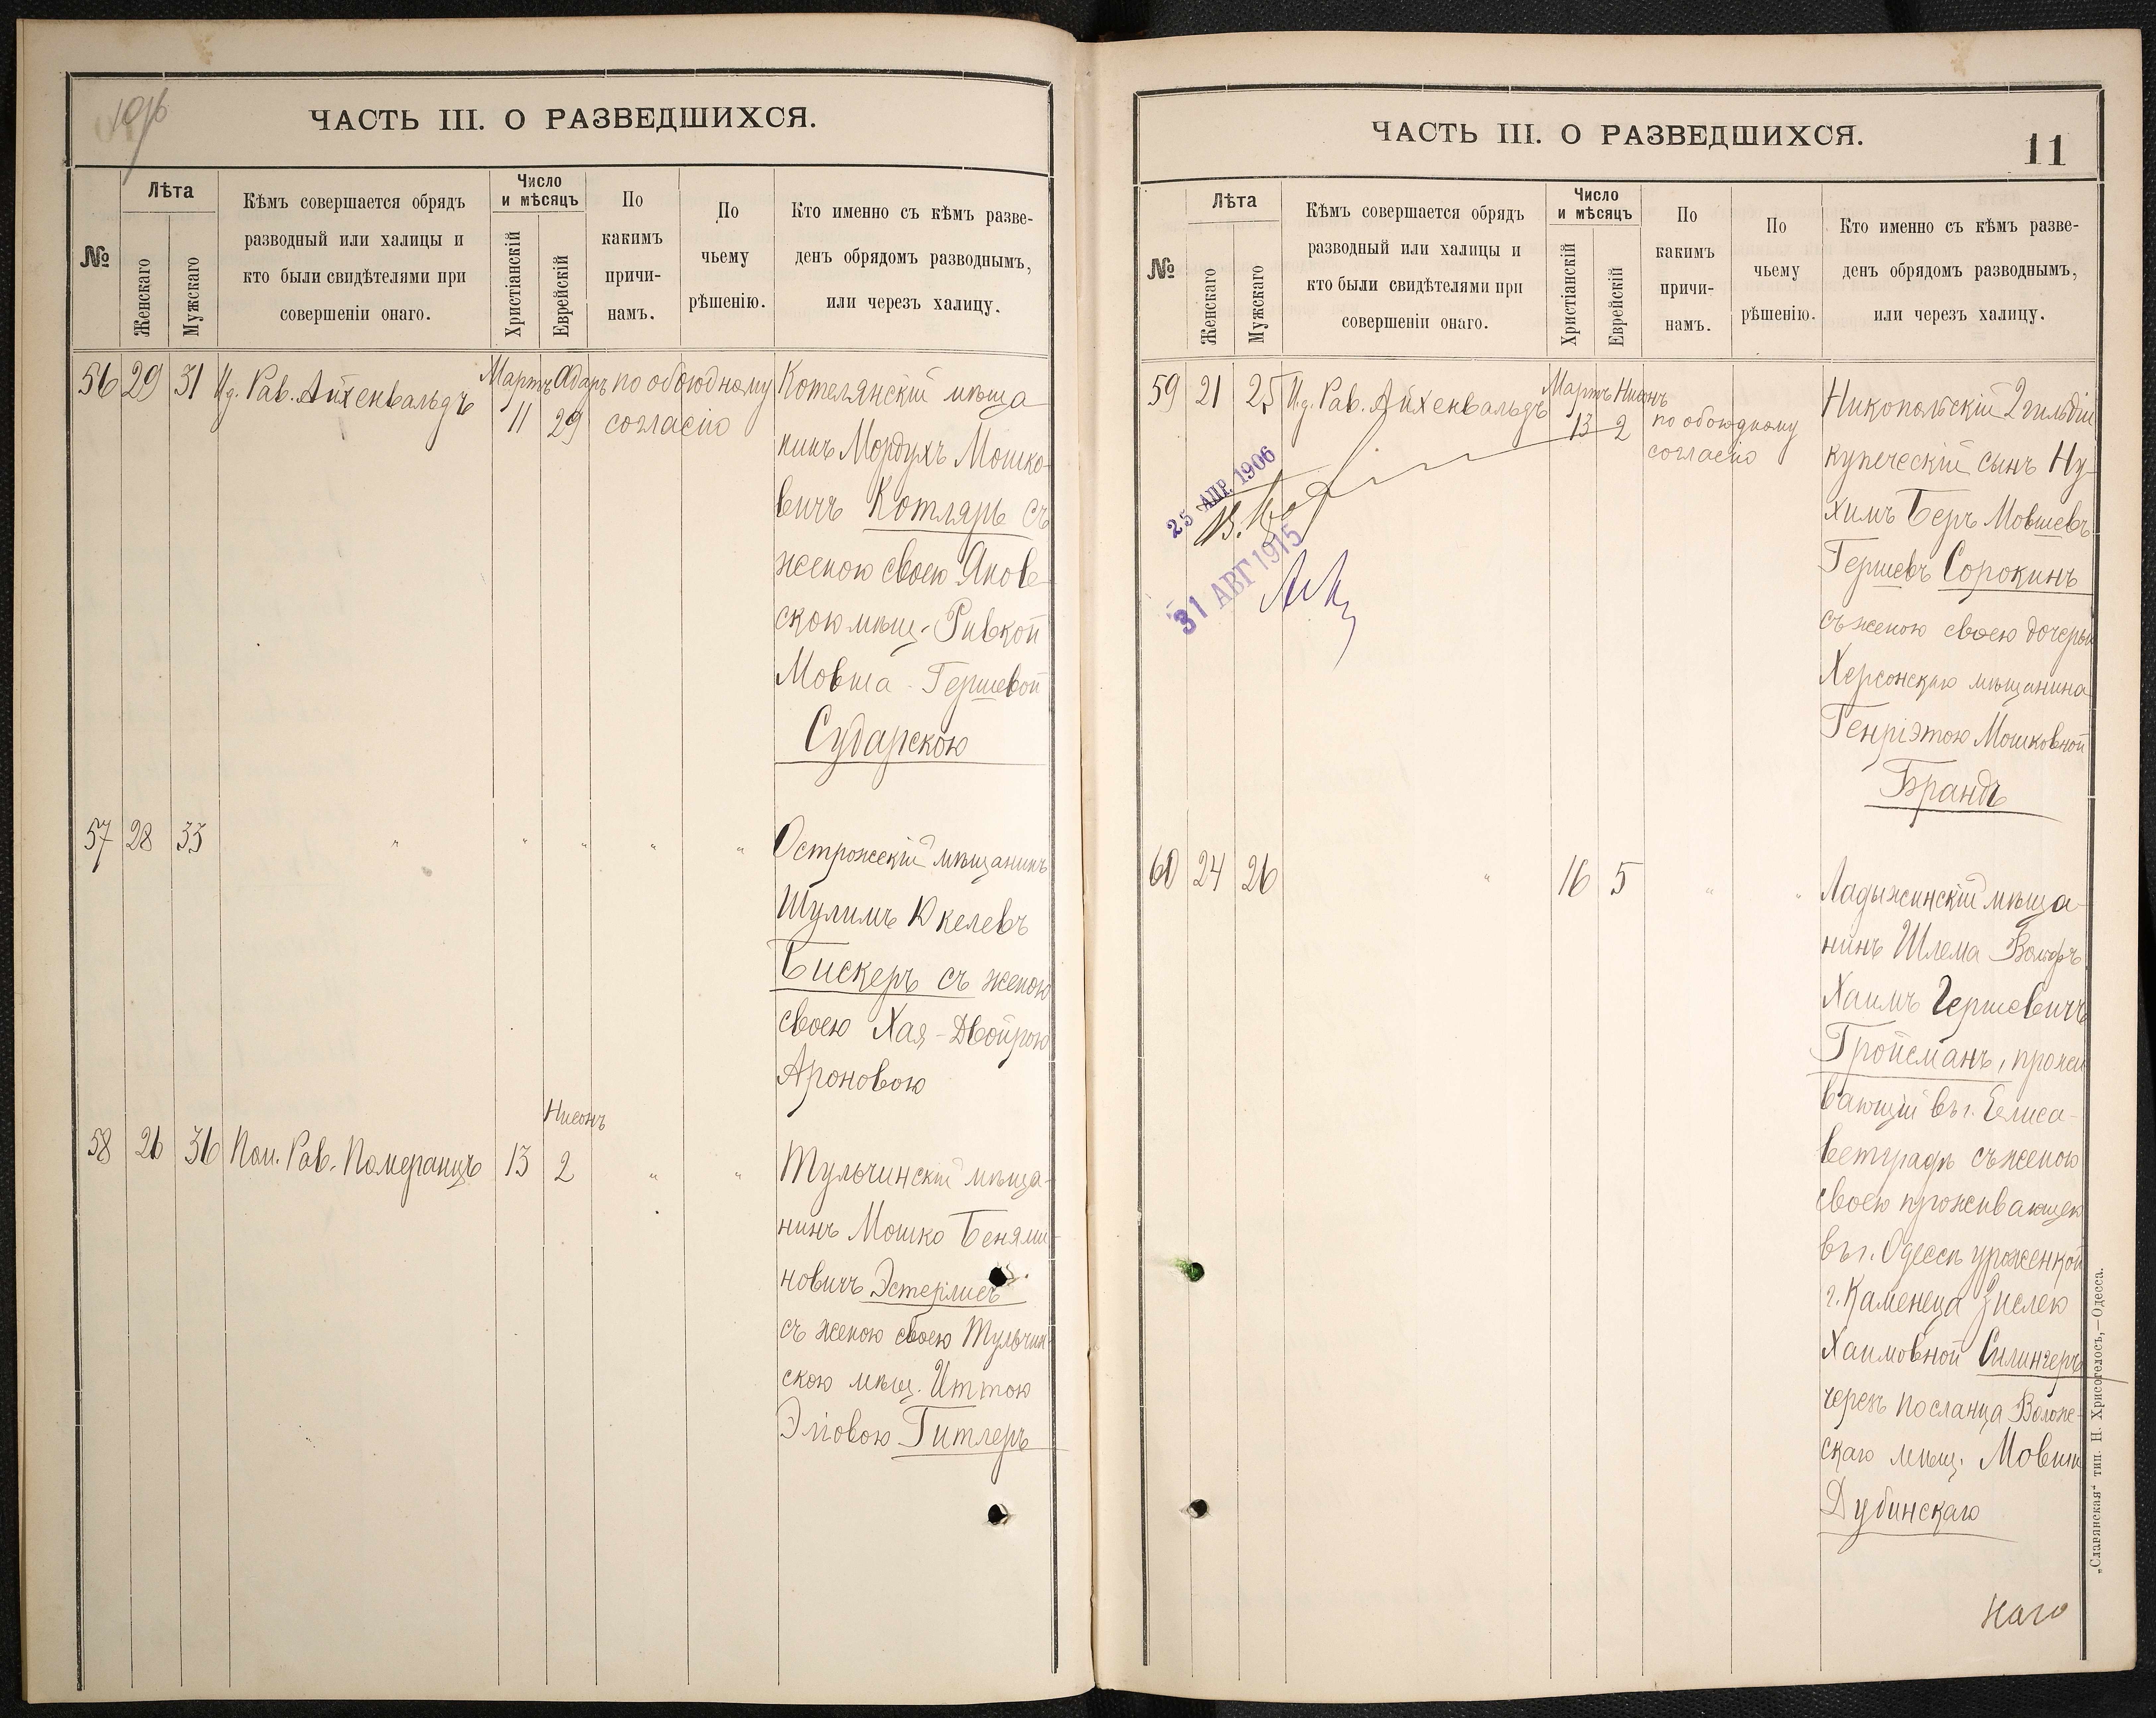 ЧАСТЬ III. О РАЗВЕДШИХСЯ.
№
Лѣта
Женскаго
Мужскаго
Кѣмъ совершается обрядъ
разводный или халицы и
кто были свидѣтелями при
совершеніи онаго.
Число
и мѣсяцъ
Христіанскій
Еврейскій
По
какимъ
причи-
намъ.
По
чьему
рѣшенію.
Кто именно съ кѣмъ разве-
денъ обрядомъ разводнымъ,
или черезъ халицу.
56 29 31 И.д. Рав. Айхенвальдъ Мартъ 11 Адаръ 29 по обоюдному
согласію
Котелянскій мѣща
нинъ Мордухъ Мошко-
вичъ Котляръ съ
женою своею
скою мѣщ. Ривкой
Мовша-Гершевой
Сударскою
57 28 33 " " " " "
Острожскій мѣщанинъ
Шулимъ Юкелевъ
Бискеръ съ женою
своею Хая-Двойрою
Ароновою
Нисонъ
58 26 36 Пом. Рав. Померанцъ 13 2 " "
Тульчинскій мѣща-
нинъ Мошко Бенями-
новичъ Эстерлисъ
съ женою своею Тульчин-
скою мѣщ. Иттою
Эліовою Гитлеръ
ЧАСТЬ III. О РАЗВЕДШИХСЯ.
11
№
Лѣта
Женскаго
Мужскаго
Кѣмъ совершается обрядъ
разводный или халицы и
кто были свидѣтелями при
совершеніи онаго.
Число
и мѣсяцъ
Христіанскій
Еврейскій
По
какимъ
причи-
намъ.
По
чьему
рѣшенію.
Кто именно съ кѣмъ разве-
денъ обрядомъ разводнымъ,
или черезъ халицу.
59 21 25 И.д. Рав. Айхенвальдъ Мартъ 13 Нисонъ 2
по обоюдному
согласію
25 АПР. 1906
31 АВГ 1915
Никопольскій 2 гильдіи
купеческій сынъ Ну-
химъ Беръ Мовшевъ
Гершевъ Сорокинъ
съ женою своею дочерью
Херсонскаго мѣщанина
Генріэтою Мошковной
Брандъ
60 24 26 " 16 5 " "
Ладыжинскій мѣща-
нинъ Шлема Вольфъ
Хаимъ Гершевичъ
Гройсманъ, прожи
вающій въ г. Елиса-
ветградѣ съ женою
своею проживающей
въ г. Одессѣ уроженкой
г. Каменеца Зислею
Хаимовной Силингеръ
черезъ посланца
скаго мѣщ. Мовши
Дубинскаго
наго
„Славянская“ тип. Н. Хрисогелосъ,—Одесса.